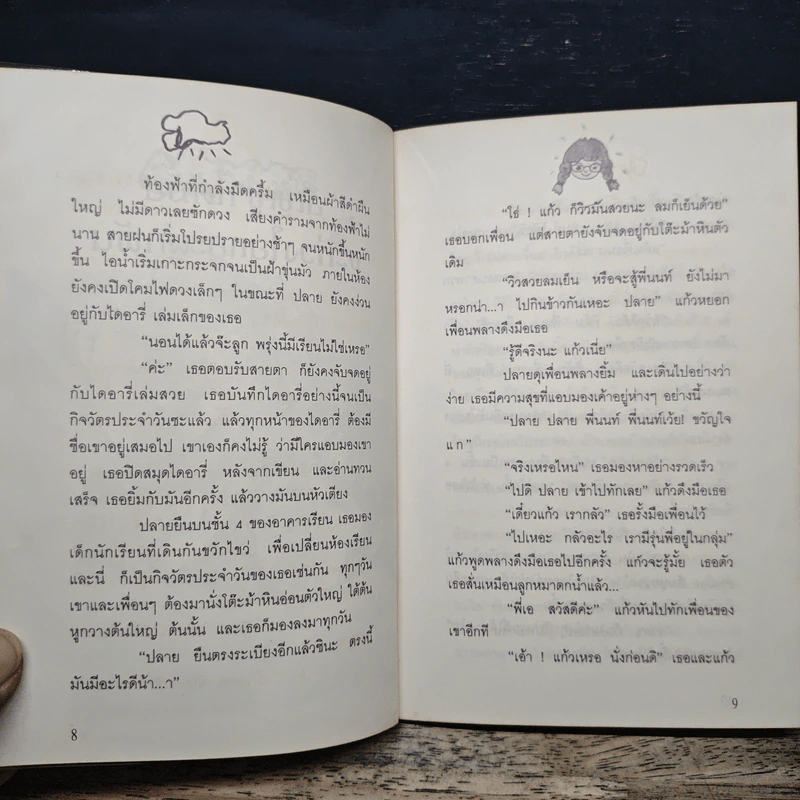 ท้องฟ้าที่กำลังมืดครึ้ม เหมือนผ้าสีดำผืน
ใหญ่ ไม่มีดาวเลยซักดวง เสียงคำรามจากท้องฟ้าไม่
นาน สายฝนก็เริ่มโปรยปรายอย่างช้าๆ จนหนักขึ้นหนัก
ขึ้น ไอน้ำเริ่มเกาะกระจกจนเป็นฝ้าขุ่นมัว ภายในห้อง
ยังคงเปิดโคมไฟดวงเล็กๆ ในขณะที่ ปลาย ยังคงง่วน
อยู่กับไดอารี่ เล่มเล็กของเธอ
"นอนได้แล้วจ๊ะลูก พรุ่งนี้มีเรียนไม่ใช่เหรอ"
"ค่ะ" เธอตอบรับสายตา ก็ยังคงจับจดอยู่
กับไดอารี่เล่มสวย เธอบันทึกไดอารี่อย่างนี้จนเป็น
กิจวัตรประจำวันซะแล้ว แล้วทุกหน้าของไดอารี่ ต้องมี
ชื่อเขาอยู่เสมอไป เขาเองก็คงไม่รู้ ว่ามีใครแอบมองเขา
อยู่ เธอปิดสมุดไดอารี่ หลังจากเขียน และอ่านทวน
เสร็จ เธอยิ้มกับมันอีกครั้ง แล้ววางมันบนหัวเตียง
ปลายยืนบนชั้น 4 ของอาคารเรียน เธอมอง
เด็กนักเรียนที่เดินกันขวักไขว่ เพื่อเปลี่ยนห้องเรียน
และนี่ ก็เป็นกิจวัตรประจำวันของเธอเช่นกัน ทุกๆวัน
เขาและเพื่อนๆ ต้องมานั่งโต๊ะม้าหินอ่อนตัวใหญ่ ใต้ต้น
หูกวางต้นใหญ่ ต้นนั้น และเธอก็มองลงมาทุกวัน
"ปลาย ยืนตรงระเบียงอีกแล้วซินะ ตรงนี้
มันมีอะไรดีน้า...า"
8
"ใช่ ! แก้ว ก็วิวมันสวยนะ ลมก็เย็นด้วย"
เธอบอกเพื่อน แต่สายตายังจับจดอยู่กับโต๊ะม้าหินตัว
เดิม
"วิวสวยลมเย็น หรือจะสู้พี่นนท์ ยังไม่มา
หรอกน่า...า ไปกินข้าวกันเหอะ ปลาย" แก้วหยอก
เพื่อนพลางดึงมือเธอ
"รู้ดีจริงนะ แก้วเนี่ย"
ปลายดุเพื่อนพลางยิ้ม และเดินไปอย่างว่า
ง่าย เธอมีความสุขที่แอบมองเค้าอยู่ห่างๆ อย่างนี้
"ปลาย ปลาย พี่นนท์ พี่นนท์เว้ย! ขวัญใจ
แก"
"จริงเหรอไหน" เธอมองหาอย่างรวดเร็ว
"ไปดิ ปลาย เข้าไปทักเลย" แก้วดึงมือเธอ
"เดี๋ยวแก้ว เรากลัว" เธอรั้งมือเพื่อนไว้
"ไปเหอะ กลัวอะไร เรามีรุ่นพี่อยู่ในกลุ่ม"
แก้วพูดพลางดึงมือเธอไปอีกครั้ง แก้วจะรู้มั้ย เธอตัว
เธอสั่นเหมือนลูกหมาตกน้ำแล้ว...
"พี่เอ สวัสดีค่ะ" แก้วหันไปทักเพื่อนของ
เขาอีกที
"เอ้า ! แก้วเหรอ นั่งก่อนดิ" เธอและแก้ว
9